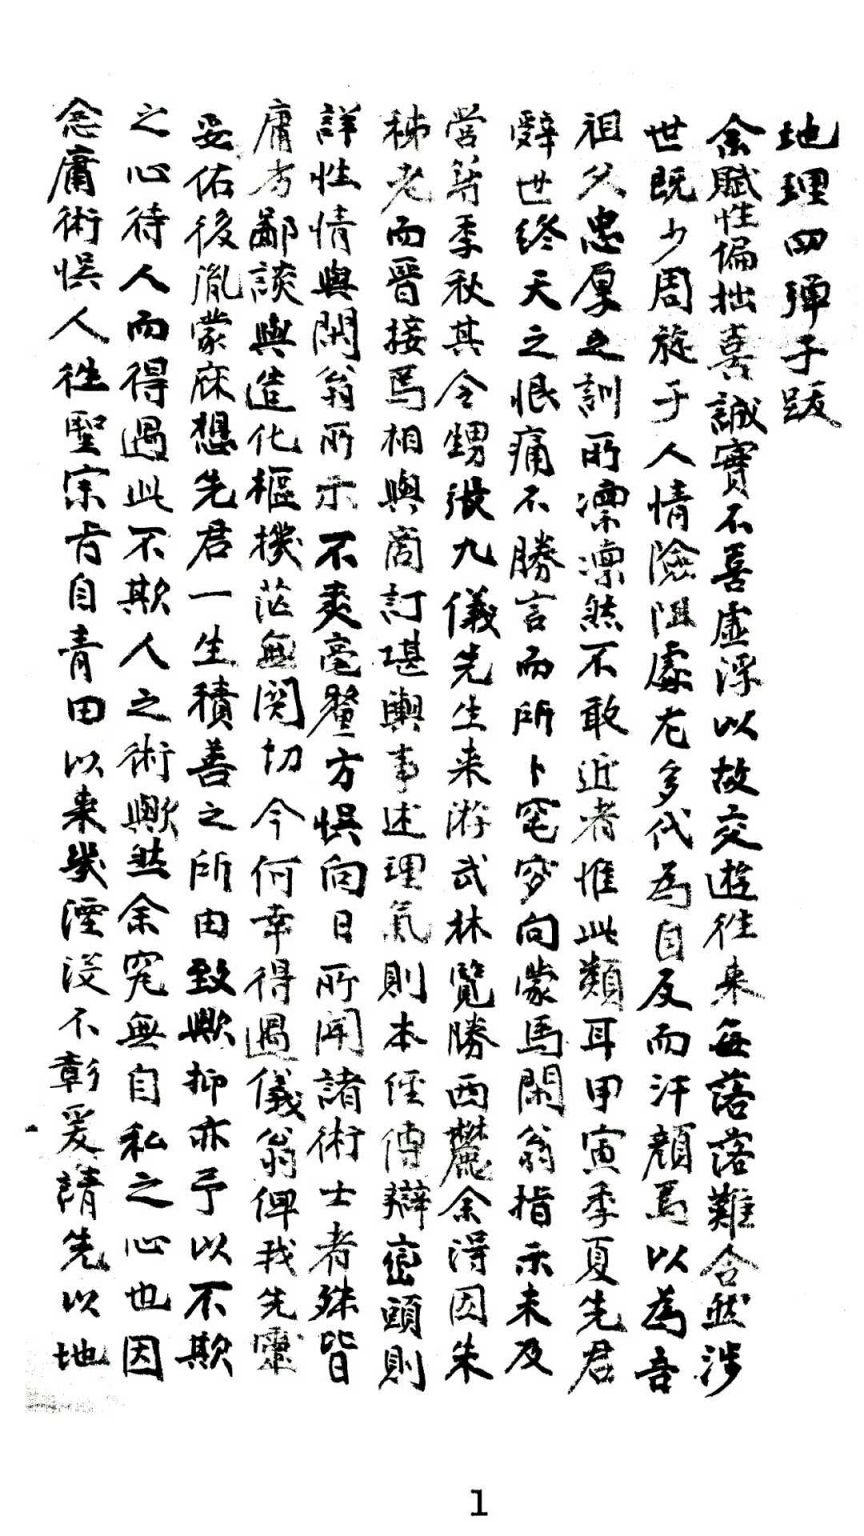 地理四彈子跋
余賦性偏拙喜誠實不喜虛浮以故交遊徃来每落落難合然涉
世既少周旋于人情險阻處尤多代為自反而汗顏焉以為吾
祖父忠厚之訓所凛凛然不敢近者惟此類耳甲寅季夏先君
辭世終天之恨痛不勝言而所卜窀穸向蒙馬閑翁指示未及
營葬季秋其令甥張九儀先生来游武林覽勝西麓余得因朱
秭老而晉接焉相與商訂堪輿事述理氣則本經傳辯巒頭則
詳性情與閑翁所示不爽毫釐方悞向日所聞諸術士者殊皆
庸夯鄙談與造化樞機茫無関切今何幸得遇儀翁俾我先靈
妥佑後胤蒙庥想先君一生積善之所由致歟抑亦予以不欺
之心待人而得遇此不欺人之術歟然余究無自私之心也因
念庸術悞人徃聖宗旨自青田以来幾湮没不彰爰請先以地
1